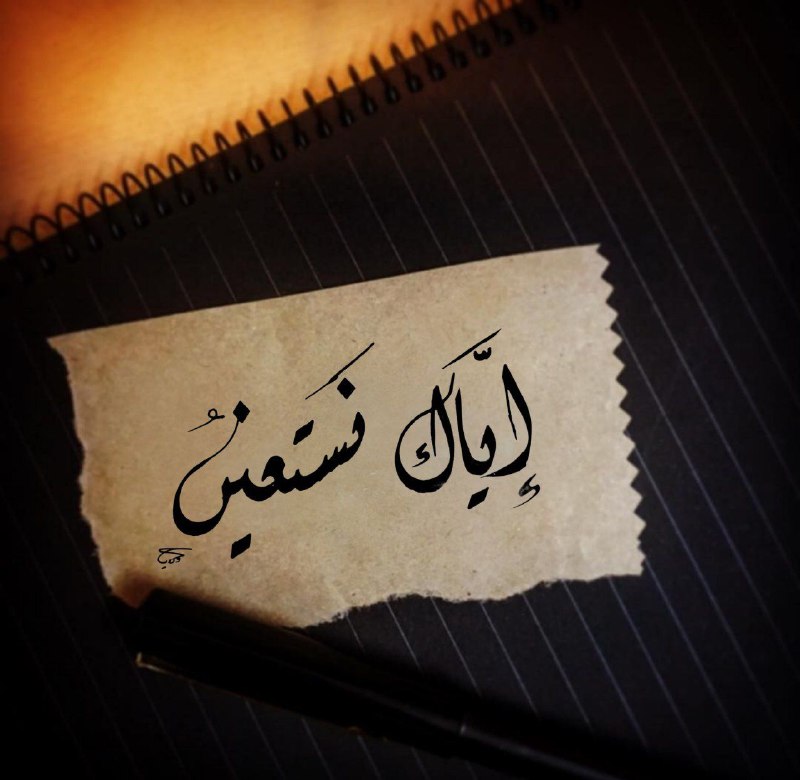 إِيَّاكَ نَسْتَعِينُ